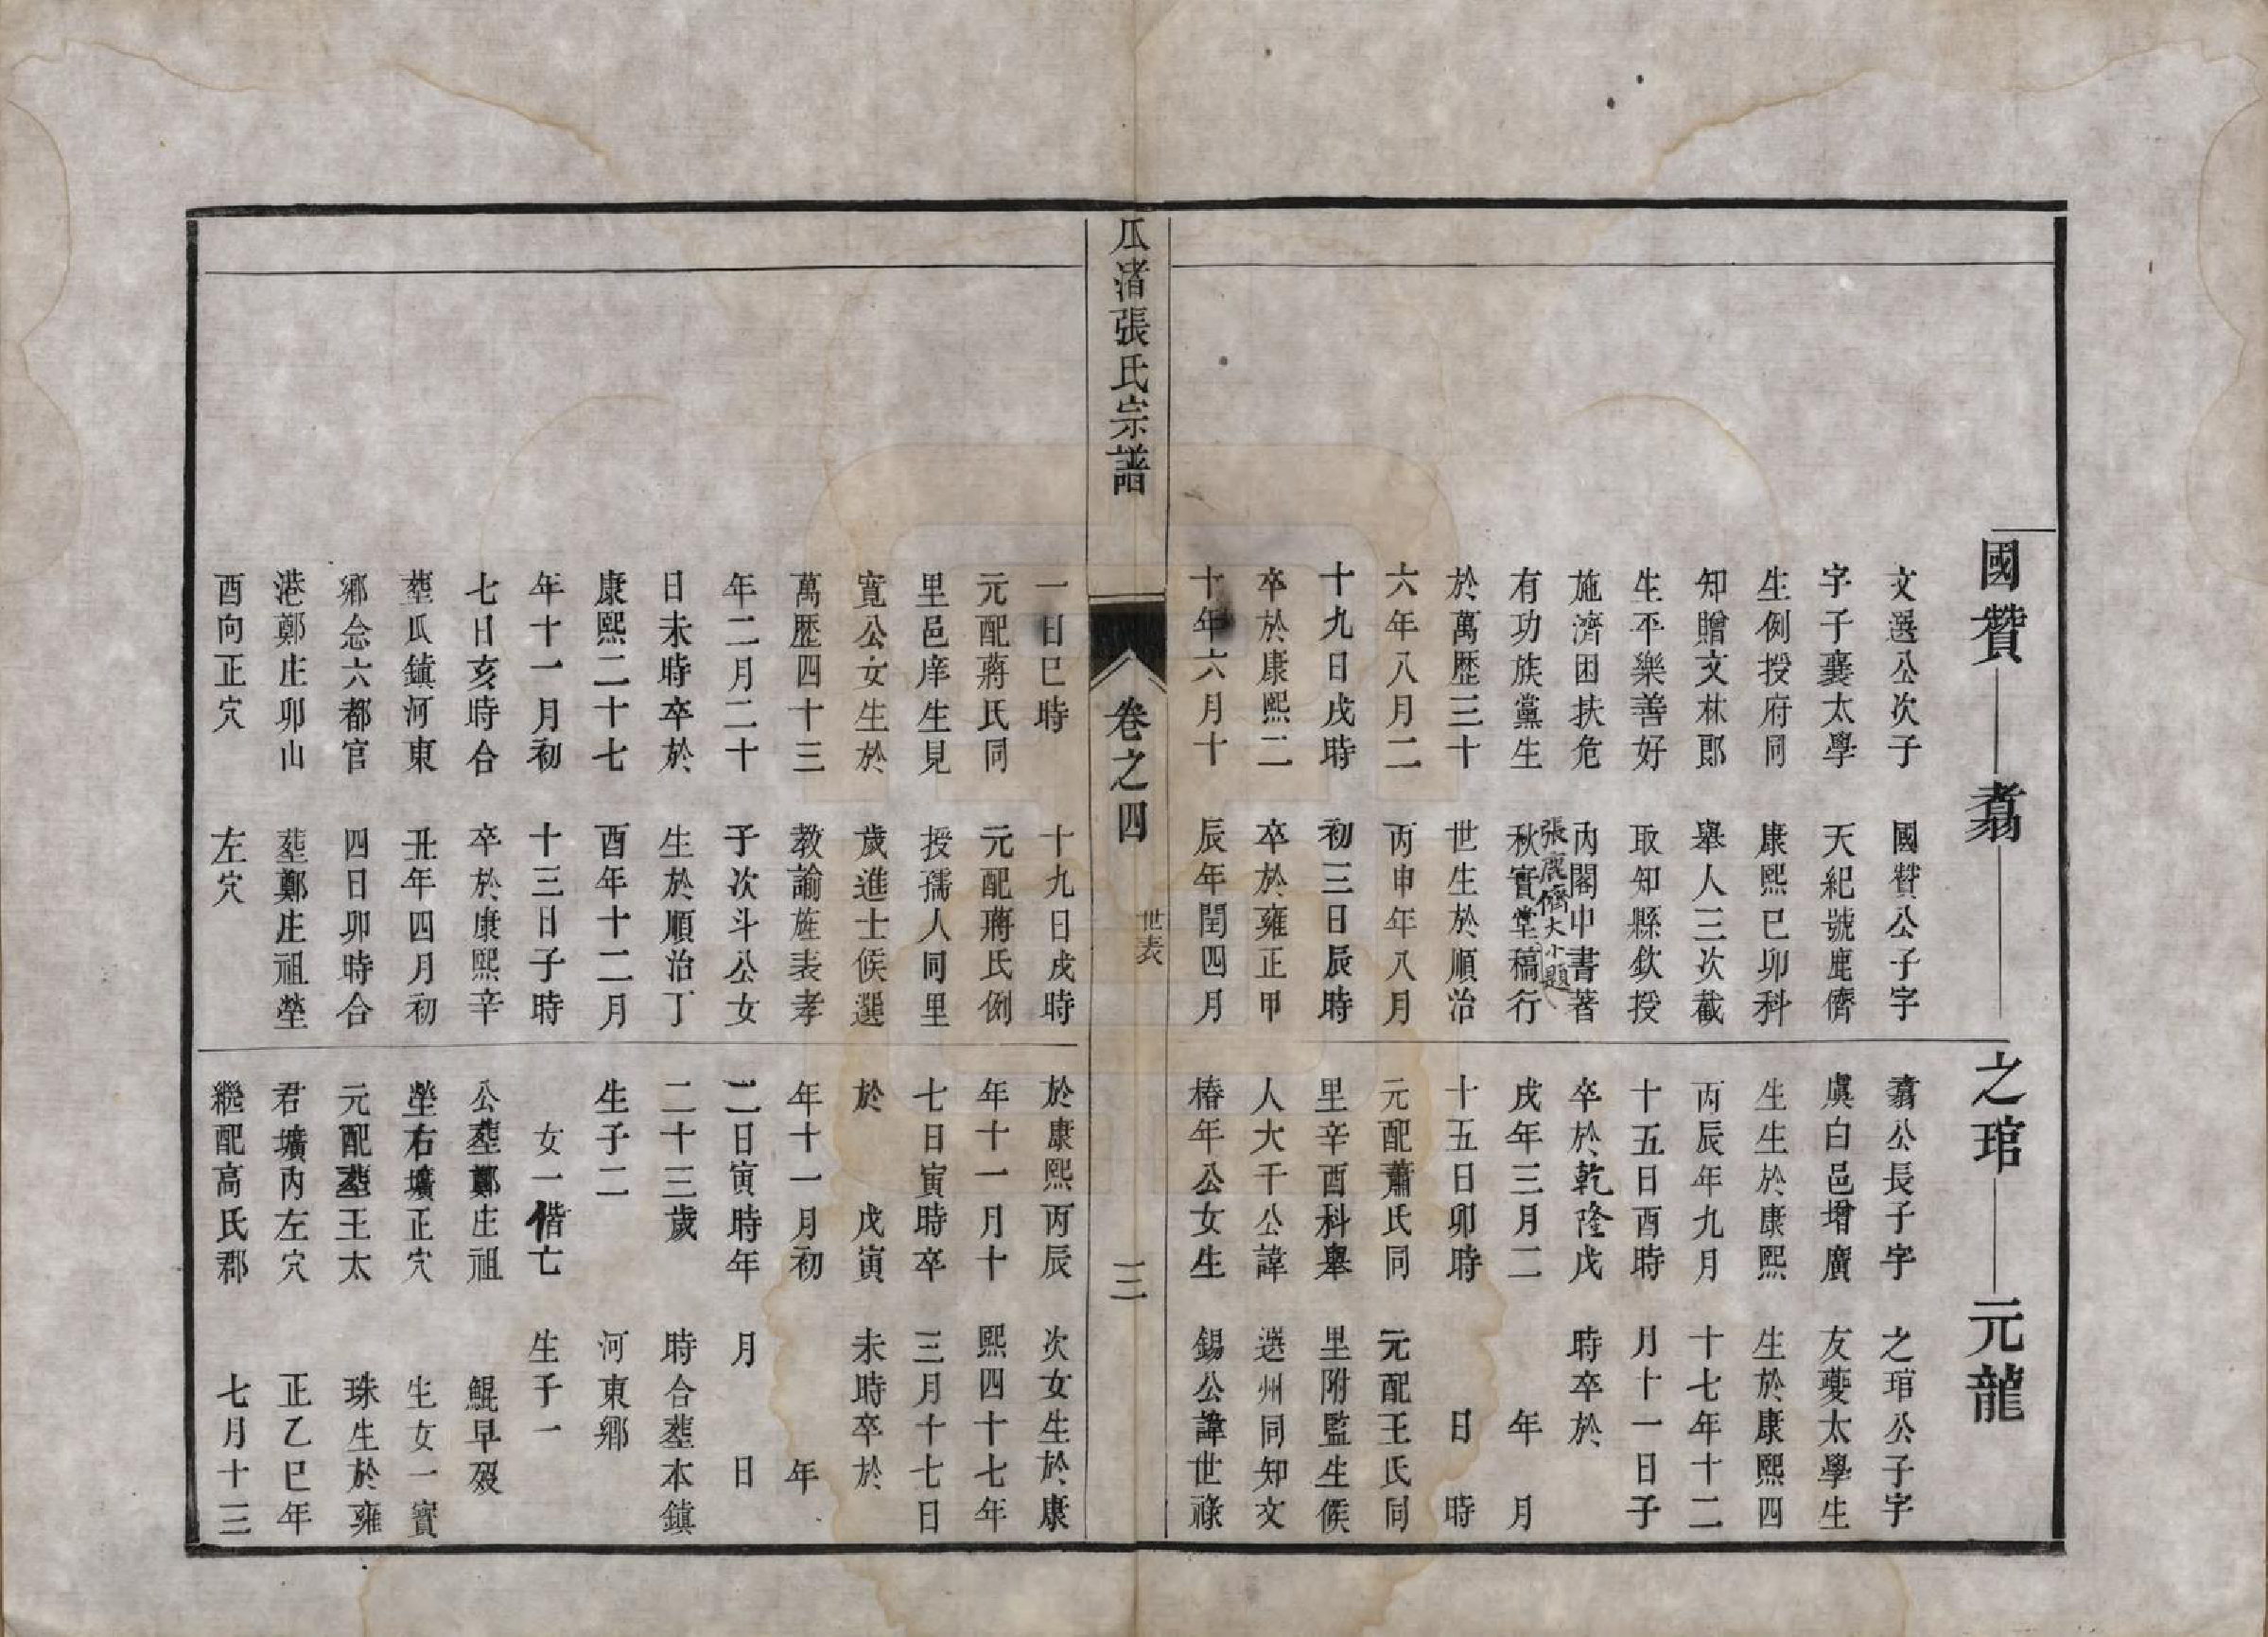 國贊
文選公次子
字子襄太學
生例授府同
知贈文林郎
生平樂善好
施濟困扶危
有功族黨生
於萬歷三十
六年八月二
十九日戌時
卒於康熙二
十年六月十
一日巳時
元配蔣氏同
里邑庠生見
寬公女生於
萬歷四十三
年二月二十
日未時卒於
康熙二十七
年十一月初
七日亥時合
塟瓜鎮河東
鄉念六都官
港鄭庄卯山
酉向正穴
翥
國贊公子字
天紀號鹿儕
康熙巳卯科
舉人三次截
取知縣欽授
內閣中書著
張鹿儕大小題
秋實堂稿行
世生於順治
丙申年八月
初三日辰時
卒於雍正甲
辰年閏四月
十九日戌時
元配蔣氏例
授孺人同里
歲進士候選
教諭旌表孝
子次斗公女
生於順治丁
酉年十二月
十三日子時
卒於康熙辛
丑年四月初
四日卯時合
塟鄭庄祖塋
左穴
之琯
翥公長子字
虞白邑增廣
生生於康熙
丙辰年九月
十五日酉時
卒於乾隆戊
戌年三月二
十五日卯時
元配蕭氏同
里辛酉科舉
人大千公諱
椿年公女生
於康熙丙辰
年十一月十
七日寅時卒
於 戊寅
年十一月初
二日寅時年
二十三歲
生子二
女一偕亡
公塟鄭庄祖
塋右壙正穴
元配塟王太
君壙內左穴
繼配高氏郡
元龍
之琯公子字
友夔太學生
生於康熙四
十七年十二
月十一日子
時卒於
年 月
日 時
元配王氏同
里附監生候
選州同知文
錫公諱世祿
次女生於康
熙四十七年
三月十七日
未時卒於
年
月 日
時合塟本鎮
河東鄉
生子一
鯤早歿
生女一實
珠生於雍
正乙巳年
七月十三
瓜渚張氏宗譜
卷之四
世表
三